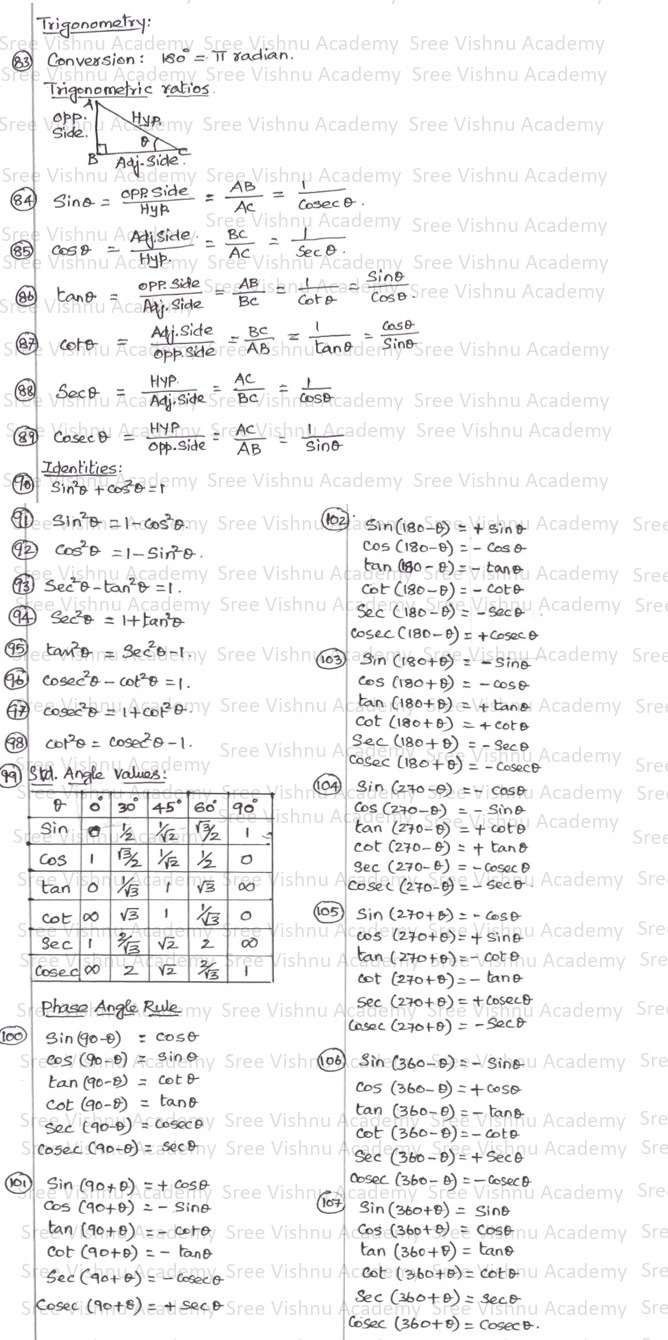 Trigonometry:
83 Conversion: 180° = π radian.
Trigonometric ratios
A
OPP. Side. Hyp
θ
B C
Adj. Side.
84 Sinθ = OPP. Side/Hyp. = AB/AC = 1/Cosecθ.
85 cosθ = Adj. Side/Hyp. = BC/AC = 1/Secθ.
86 tanθ = OPP. Side/Adj. Side = AB/BC = 1/Cotθ = Sinθ/Cosθ.
87 cotθ = Adj. Side/OPP. Side = BC/AB = 1/tanθ = Cosθ/Sinθ
88 Secθ = HYP./Adj. Side = AC/BC = 1/Cosθ
89 Cosecθ = HYP/Opp. Side = AC/AB = 1/Sinθ
Identities:
90 Sin²θ + cos²θ = 1
91 Sin²θ = 1 - Cos²θ.
92 Cos²θ = 1 - Sin²θ.
93 Sec²θ - tan²θ = 1.
94 Sec²θ = 1 + tan²θ
95 tan²θ = Sec²θ - 1.
96 cosec²θ - cot²θ = 1.
97 cosec²θ = 1 + cot²θ.
98 cot²θ = cosec²θ - 1.
99 Std. Angle Values:
θ 0° 30° 45° 60° 90°
Sin 0 1/2 1/√2 √3/2 1
Cos 1 √3/2 1/√2 1/2 0
tan 0 1/√3 1 √3 ∞
cot ∞ √3 1 1/√3 0
Sec 1 2/√3 √2 2 ∞
Cosec ∞ 2 √2 2/√3 1
Phase Angle Rule
100 Sin (90-θ) = cosθ
cos (90-θ) = sinθ
tan (90-θ) = cotθ
cot (90-θ) = tanθ
Sec (90-θ) = cosecθ
cosec (90-θ) = secθ
101 Sin (90+θ) = + cosθ
Cos (90+θ) = - Sinθ
tan (90+θ) = - cotθ
Cot (90+θ) = - tanθ
Sec (90+θ) = - cosecθ
Cosec (90+θ) = + secθ
102 Sin (180-θ) = + sinθ
cos (180-θ) = - cosθ
tan (180-θ) = - tanθ
Cot (180-θ) = - Cotθ
Sec (180-θ) = - secθ
cosec (180-θ) = + cosecθ
103 Sin (180+θ) = - Sinθ
Cos (180+θ) = - cosθ
tan (180+θ) = + tanθ
Cot (180+θ) = + cotθ
Sec (180+θ) = - Secθ
Cosec (180+θ) = - cosecθ
104 Sin (270-θ) = - cosθ
Cos (270-θ) = - Sinθ
tan (270-θ) = + cotθ
cot (270-θ) = + tanθ
sec (270-θ) = - cosecθ
Cosec (270-θ) = - secθ
105 Sin (270+θ) = - cosθ
cos (270+θ) = + Sinθ
tan (270+θ) = - cotθ
cot (270+θ) = - tanθ
sec (270+θ) = + cosecθ
Cosec (270+θ) = - secθ
106 Sin (360-θ) = - Sinθ
cos (360-θ) = + cosθ
tan (360-θ) = - tanθ
cot (360-θ) = - cotθ
Sec (360-θ) = + Secθ
Cosec (360-θ) = - cosecθ
107 Sin (360+θ) = Sinθ
Cos (360+θ) = cosθ
tan (360+θ) = tanθ
Cot (360+θ) = cotθ
Sec (360+θ) = secθ
Cosec (360+θ) = cosecθ.
Sree Vishnu Academy